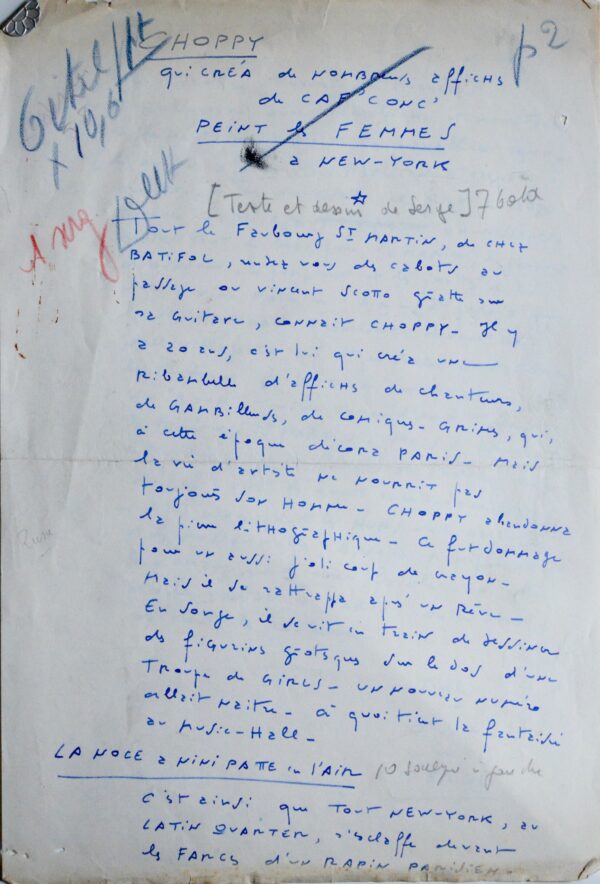 CHOPPY
p 2
qui CRÉA de NOMBREUX affichs
de CAF' CONC'
PEINT les FEMMES
a NEW-YORK
[Texte et dessins de Serge] 7
Tout le Faubourg ST MARTIN, de CHEZ
BATIFOL, rendez vous des cabots au
passage ou vincent Scotto gratte sur
sa Guitare, connait CHOPPY - Il y
a 20 ans, c'est lui qui créa une
Ribambelle d'affichs de chanteurs,
de GAMBILLEURS, de comiques-GRIMES, qui,
à cette époque décora PARIS - Mais
la vie d'artiste ne nourrit pas
toujours son HOMME - CHOPPY abandonna
la pierre lithographique - Ce fut dommage
pour un aussi joli coup de crayon -
Mais il se rattrappa après un Rêve -
En songe, il se vit en train de dessiner
des figurins grotsques sur le dos d'une
Troupe de GIRLS - UN NOUVEAU NUMÉRO
allait naitre - à quoi tient la fantaisie
au Music-Hall -
LA NOCE a NINI PATTE en l'AIR 10
C'est ainsi que TOUT NEW-YORK, au
LATIN QUARTER, s'esclaffe devant
les FARCES d'un RAPIN PARISIEN -